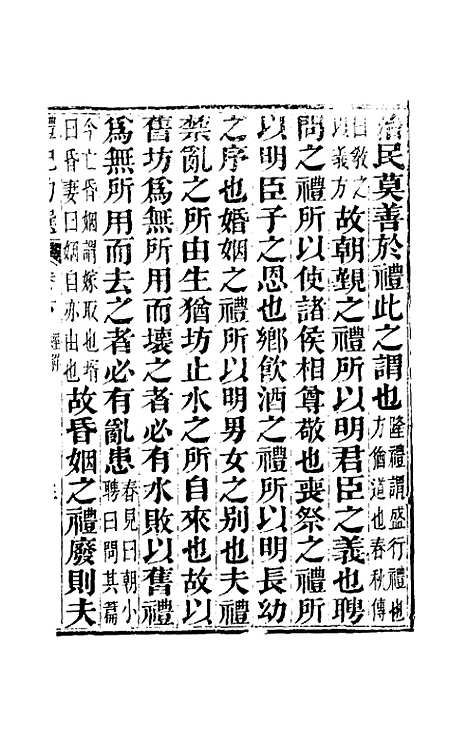 治民莫善於禮此之謂也隆禮謂盛行禮也方猶道也春秋傳
曰敎之以義方故朝覲之禮所以明君臣之義也聘
問之禮所以使諸侯相尊敬也喪祭之禮所
以明臣子之恩也鄉飮酒之禮所以明長幼
之序也婚姻之禮所以明男女之别也夫禮
禁亂之所由生猶坊止水之所自來也故以
舊坊爲無所用而壞之者必有水敗以舊禮
爲無所用而去之者必有亂患春見曰朝小聘曰問其篇
今亡昏姻謂嫁取也壻曰昏妻曰姻自亦由也故昏姻之禮廢則夫
禮記 經解